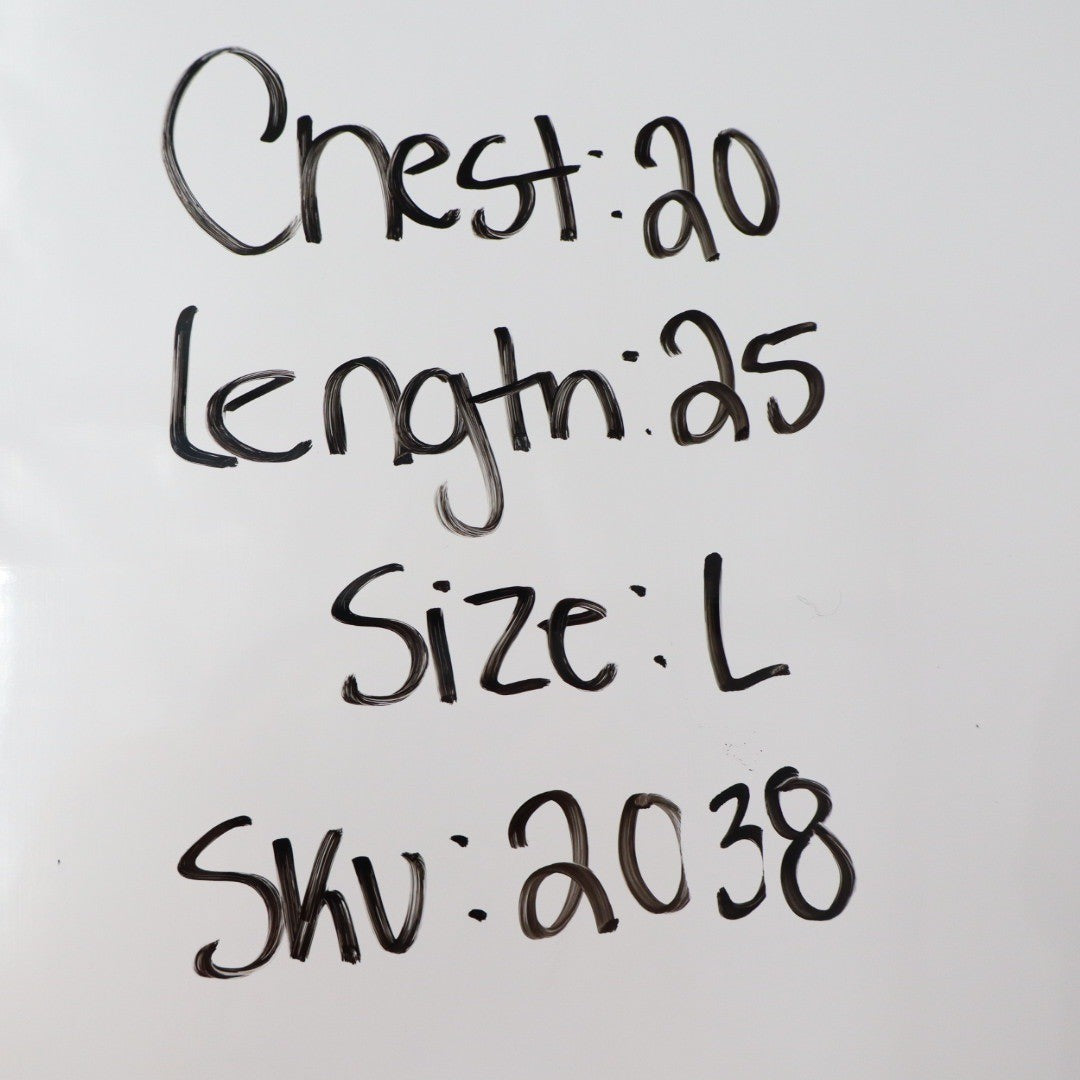 Chest: 20
Length: 25
Size: L
Sku: 2038